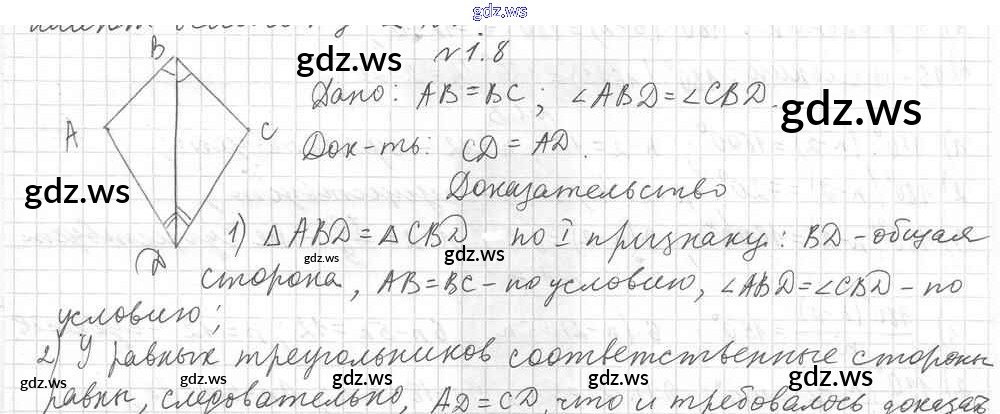 gdz.ws
N1.8
B
Дано: AB=BC; ∠ABD=∠CBD.
A
C
Док-ть: CD=AD.
Доказательство
D
1) △ABD=△CBD по I признаку: BD-общая
сторона, AB=BC-по условию, ∠ABD=∠CBD-по
условию;
2) У равных треугольников соответственные стороны
равны, следовательно, AD=CD, что и требовалось
gdz.ws
gdz.ws
gdz.ws
gdz.ws
gdz.ws
gdz.ws
gdz.ws
gdz.ws
gdz.ws
gdz.ws
gdz.ws